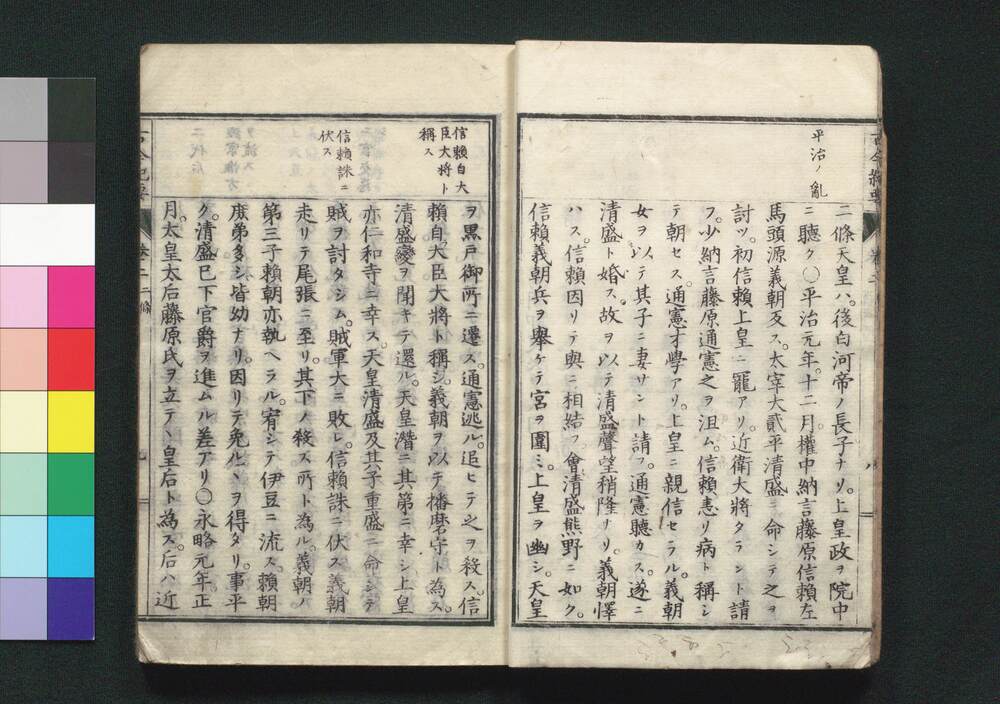 平治ノ亂
二條天皇ハ。後白河帝ノ長子ナリ。上皇政ヲ院中
ニ聽ク○平治元年。十二月。權中納言藤原信賴左
馬頭源義朝反ス。太宰大貳平清盛ニ命シテ之ヲ
討ツ。初信賴上皇ニ寵アリ。近衛大將タラント請
フ。少納言藤原通憲之ヲ沮ム。信賴恚リ病ト稱シ
テ朝セス。通憲才學アリ。上皇ニ親信セラル。義朝
女ヲ以テ其子ニ妻サント請フ。通憲聽カス。遂ニ
清盛ト婚ス。故ヲ以テ清盛聲望稍隆ナリ。義朝懌
ハス。信賴因リテ與ニ相結フ。會清盛熊野ニ如ク。
信賴義朝兵ヲ擧ケテ宮ヲ圍ミ。上皇ヲ幽シ。天皇
信賴自大
臣大將ト
稱ス
信賴誅ニ
伏ス
二代后
ヲ黒戸御所ニ遷ス。通憲逃ル。追ヒテ之ヲ殺ス。信
賴自大臣大將ト稱シ。義朝ヲ以テ播磨守ト為ス。
清盛變ヲ聞キテ還ル。天皇潛ニ其第ニ幸シ上皇
亦仁和寺ニ幸ス。天皇清盛及其子重盛ニ命シテ
賊ヲ討タシム。賊軍大ニ敗レ。信賴誅ニ伏ス義朝
走リテ尾張ニ至リ。其下ノ殺ス所ト為ル。義朝ノ
第三子賴朝亦執ヘラル。宥シテ伊豆ニ流ス。賴朝
庶弟多シ皆幼ナリ。因リテ免ルヽヲ得タリ。事平
ク。清盛已下官爵ヲ進ムル差アリ○永略元年。正
月。太皇太后藤原氏ヲ立テヽ皇后ト為ス。后ハ近
卷二 二條